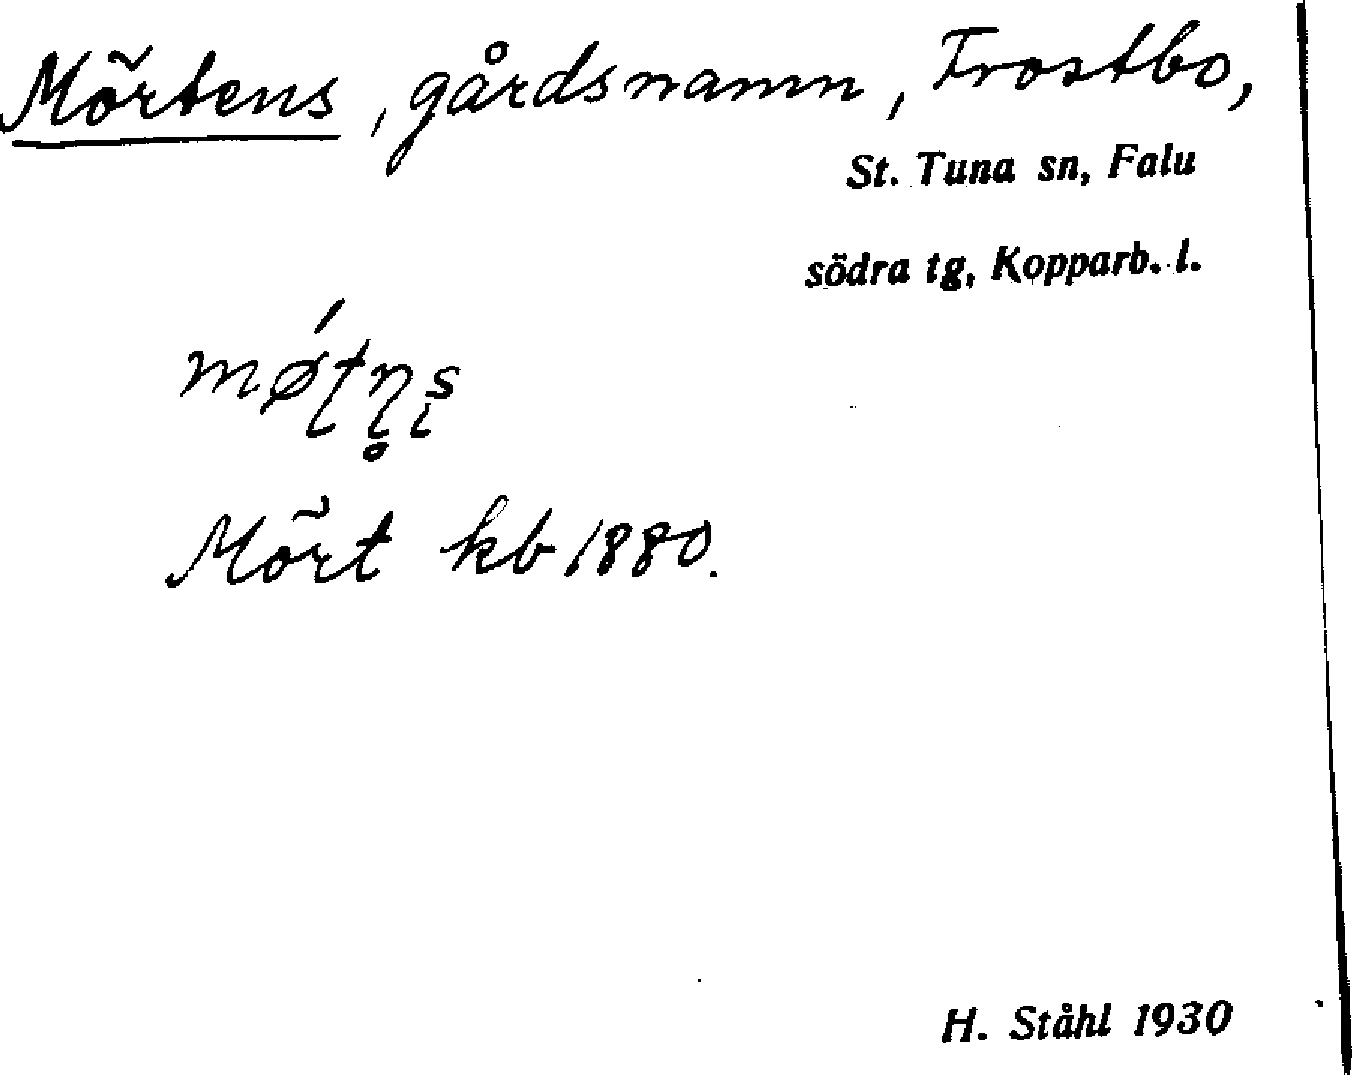 Mörtens, gårdsnamn, Frostbo,
St. Tuna sn, Falu
södra tg, Kopparb. l.
mǿʈɳ̥ʂ
Mört kb 1880.
H. Ståhl 1930